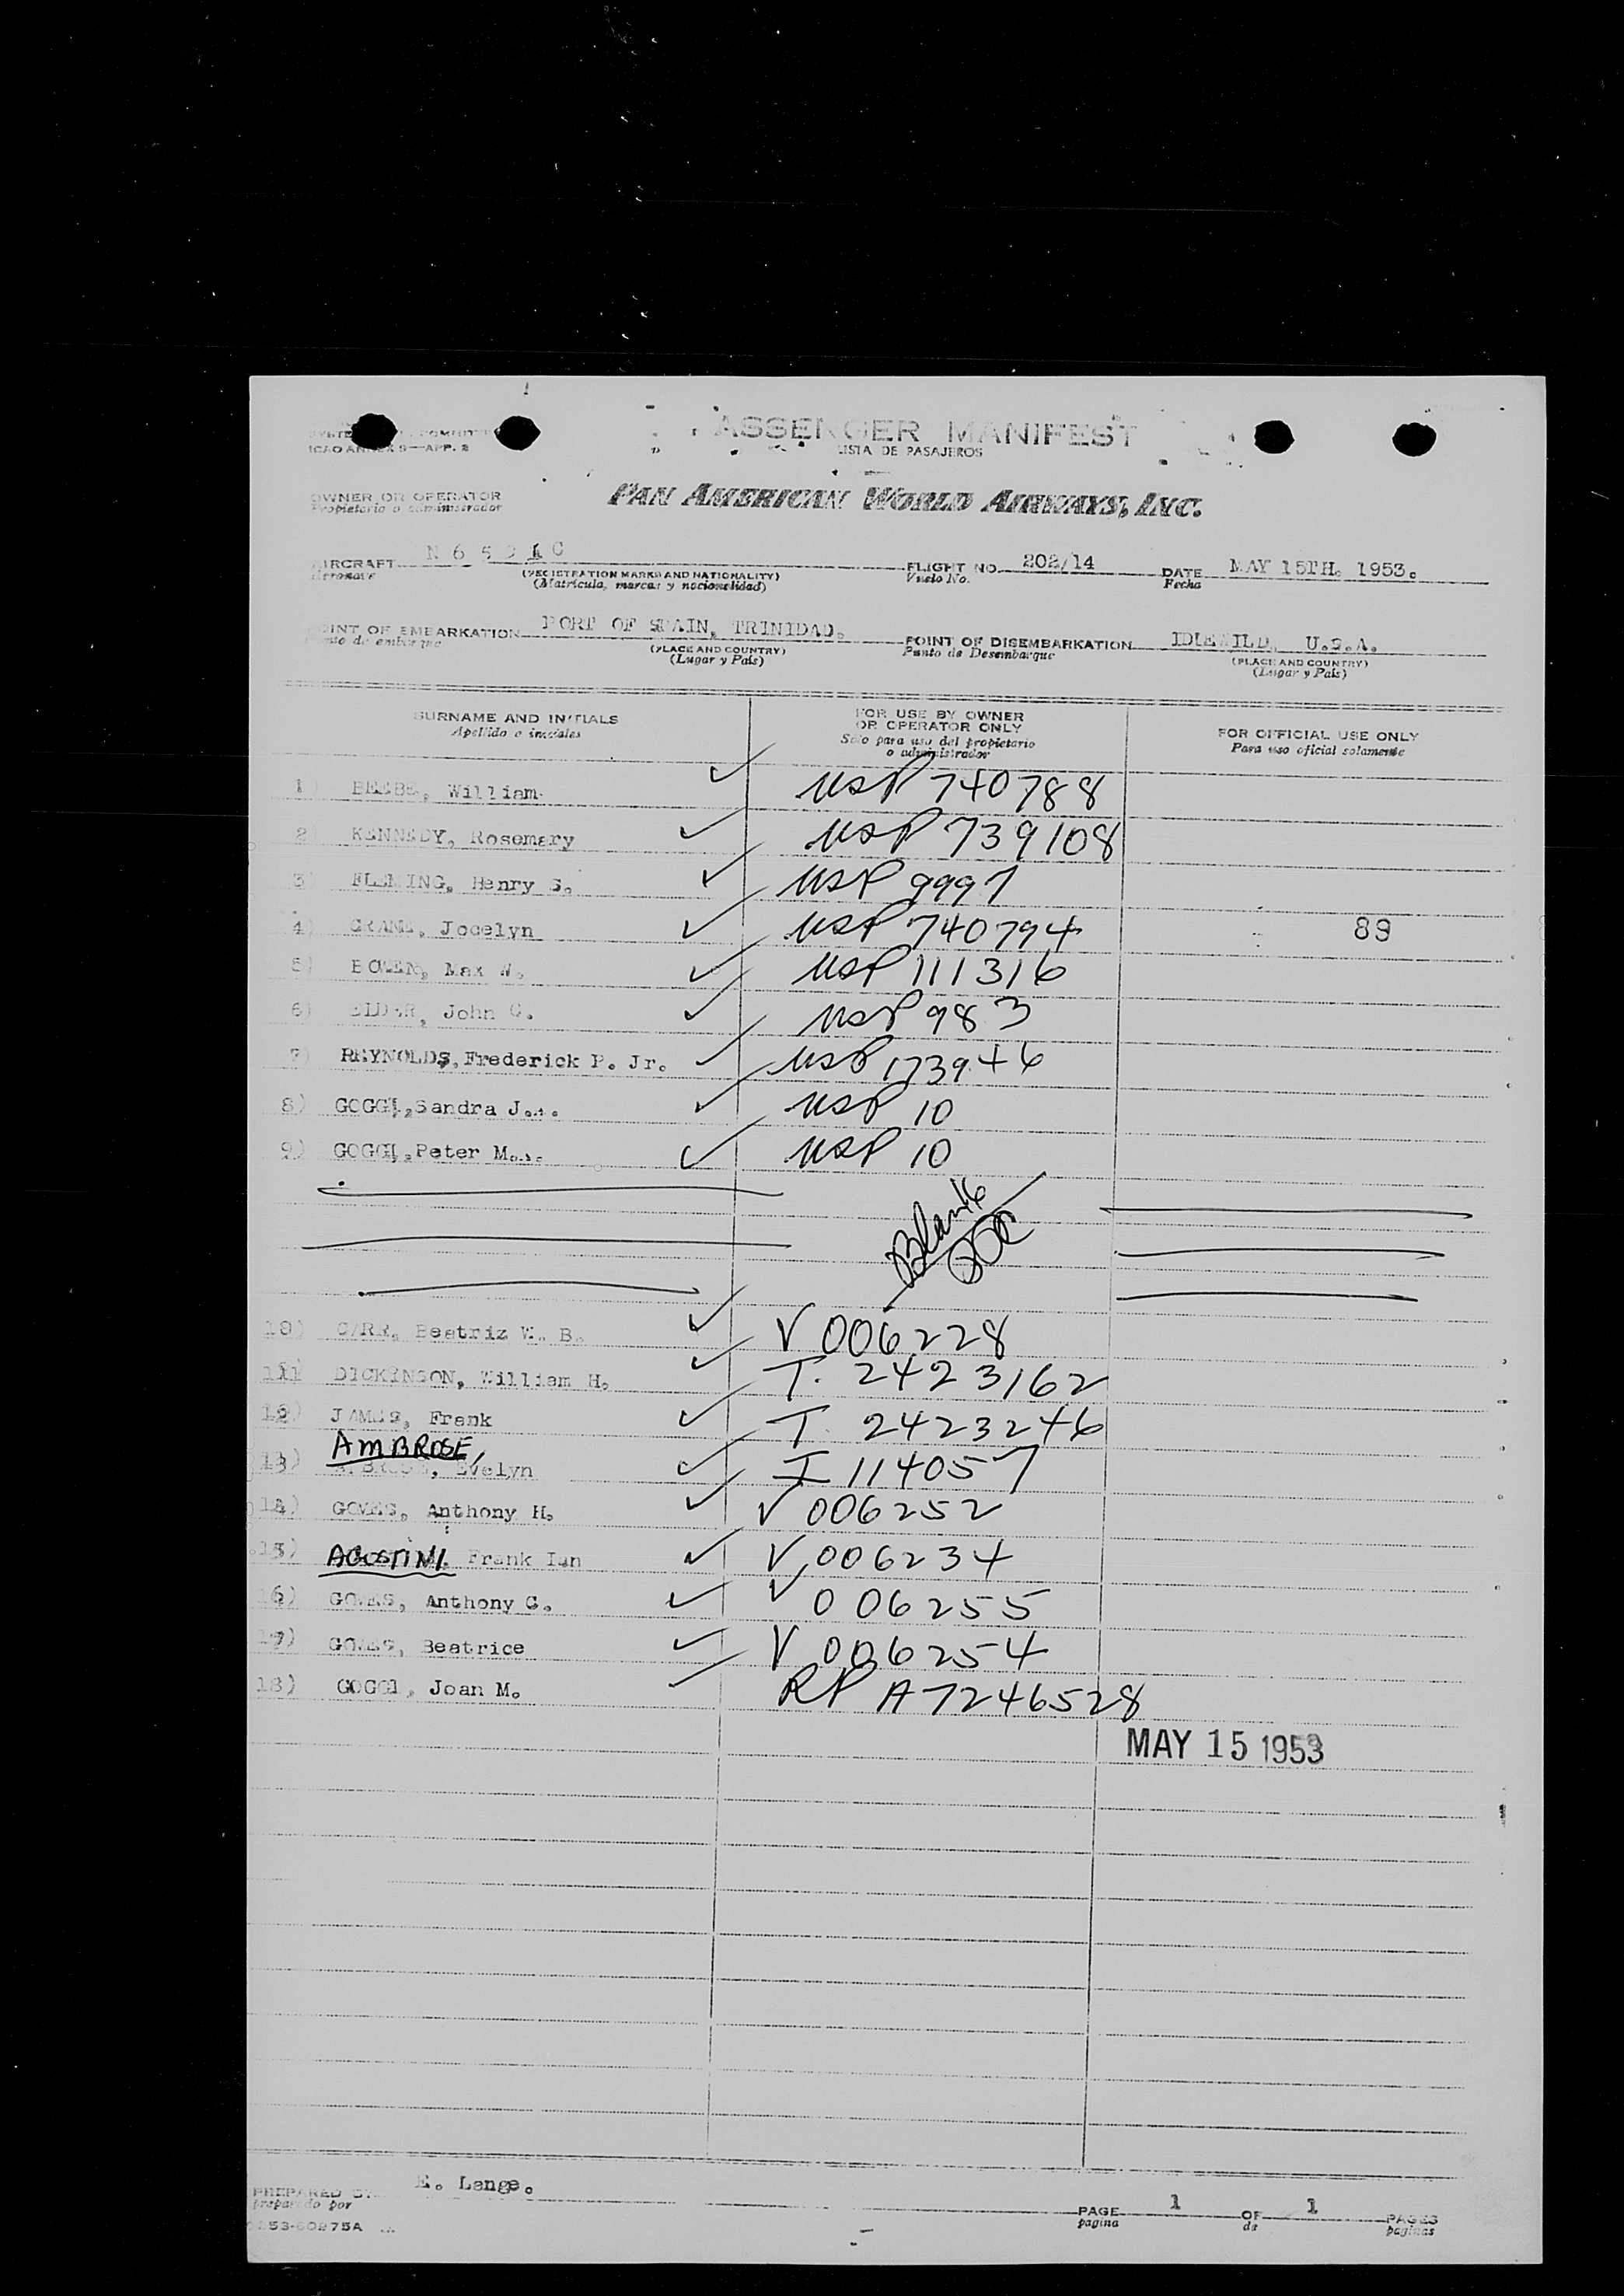 ICAO ANNEX 9—APP. 2
PASSENGER MANIFEST
LISTA DE PASAJEROS
OWNER OR OPERATOR
Propietario o administrador
PAN AMERICAN WORLD AIRWAYS, INC.
AIRCRAFT
Aeronave
(REGISTRATION MARKS AND NATIONALITY)
(Matrícula, marcas y nacionalidad)
FLIGHT NO. 202/14
Vuelo No.
DATE MAY 15TH. 1953.
Fecha
POINT OF EMBARKATION PORT OF SPAIN, TRINIDAD.
Punto de embarque
(PLACE AND COUNTRY)
(Lugar y País)
POINT OF DISEMBARKATION IDLEWILD, U.S.A.
Punto de Desembarque
(PLACE AND COUNTRY)
(Lugar y País)
SURNAME AND INITIALS
Apellido e iniciales
FOR USE BY OWNER
OR OPERATOR ONLY
Sólo para uso del propietario
o administrador
FOR OFFICIAL USE ONLY
Para uso oficial solamente
1) BEEBE, William USP 740788
2) KENNEDY, Rosemary USP 739108
3) FLEMING, Henry S. USP 9997
4) CRANE, Jocelyn USP 740794 89
5) BOWEN, Max W. USP 111316
6) ELDER, John C. USP 983
7) REYNOLDS, Frederick P. Jr. USP 173946
8) GOGGI, Sandra J. USP 10
9) GOGGI, Peter M. USP 10
Blank
10) CARR, Beatriz W. B. V 006228
11) DICKINSON, William H. T. 2423162
12) JAMES, Frank T. 2423246
AMBROSE,
13) Evelyn I 114057
14) GOMES, Anthony H. V 006252
15) AGOSTINI Frank Ian V 006234
16) GOMES, Anthony G. V 006255
17) GOMES, Beatrice V 006254
18) GOGGI, Joan M. RP A7246528
MAY 15 1953
PREPARED BY E. Lange.
preparado por
PAGE 1 OF 1 PAGES
pagina de paginas